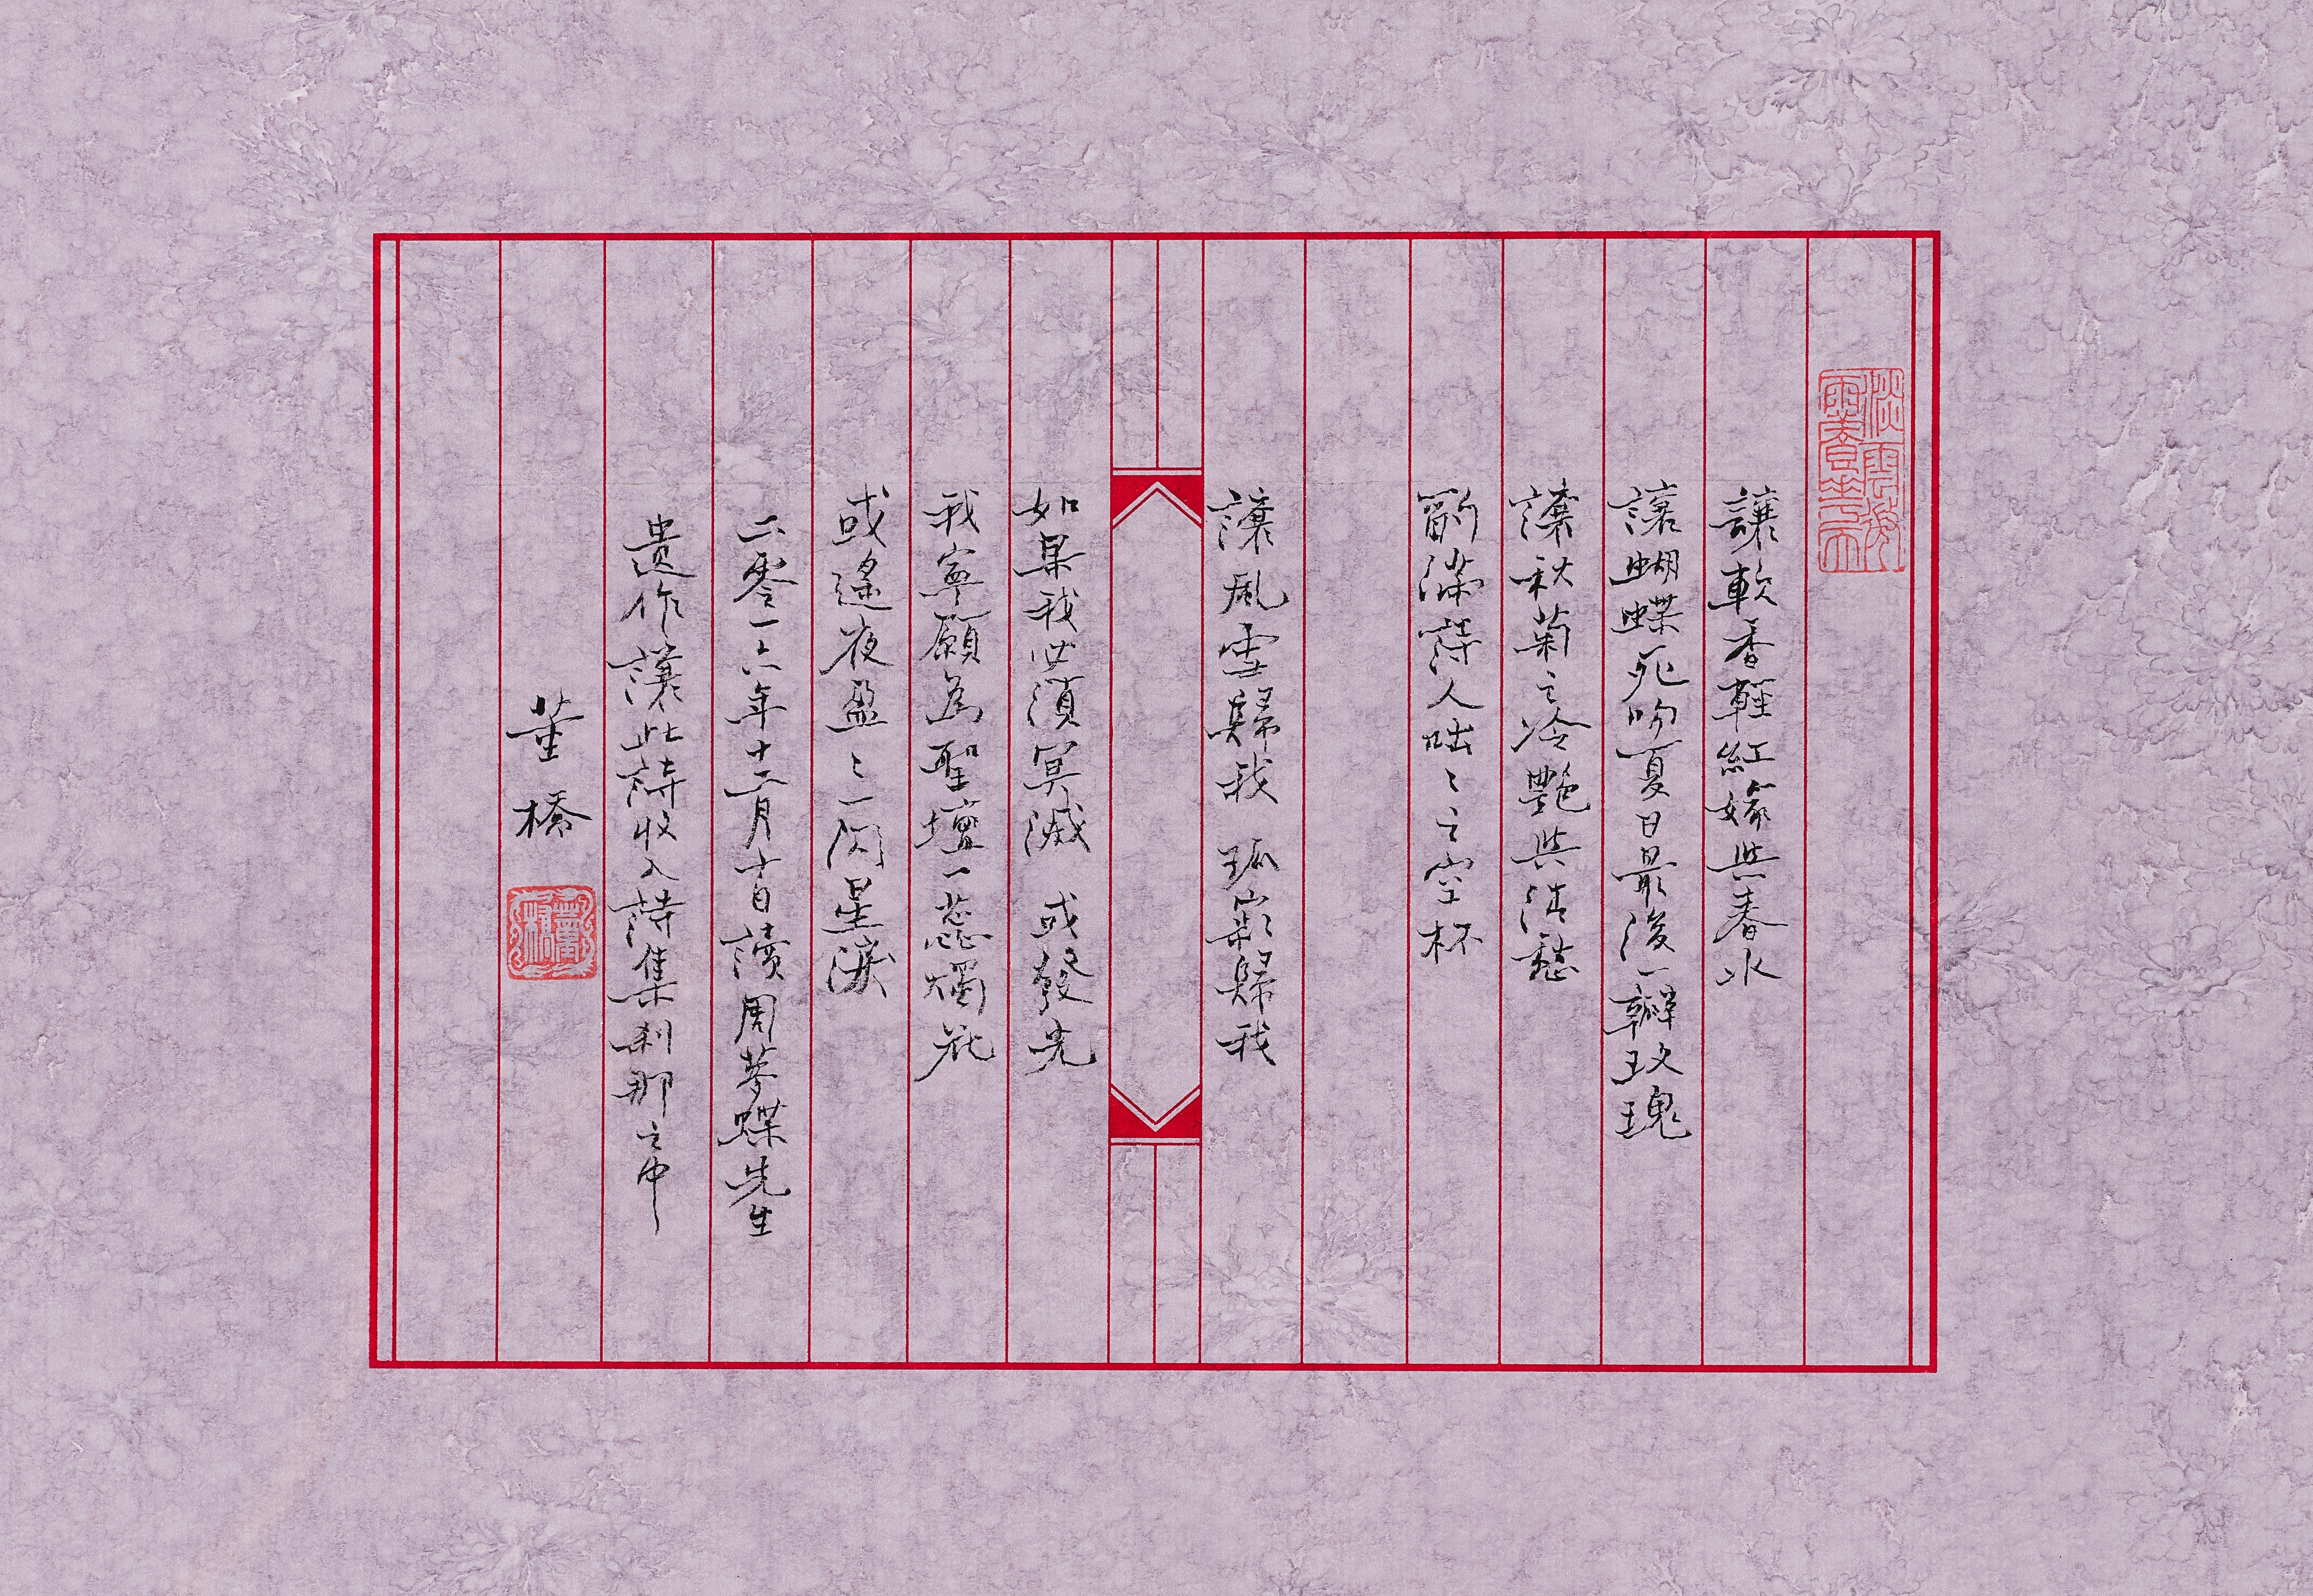 讓軟香輕紅嫁與春水
讓蝴蝶死吻夏日最後一瓣玫瑰
讓秋菊之冷艷與清愁
酌滿詩人咄々之空杯
讓風雪歸我 孤寂歸我
如果我必須冥滅 或發光
我寧願為聖壇一蕊燭花
或遙夜盈々一閃星淚
二零一六年十二月日讀周夢蝶先生
遺作讓此詩收入詩集刹那之中
董橋
董橋